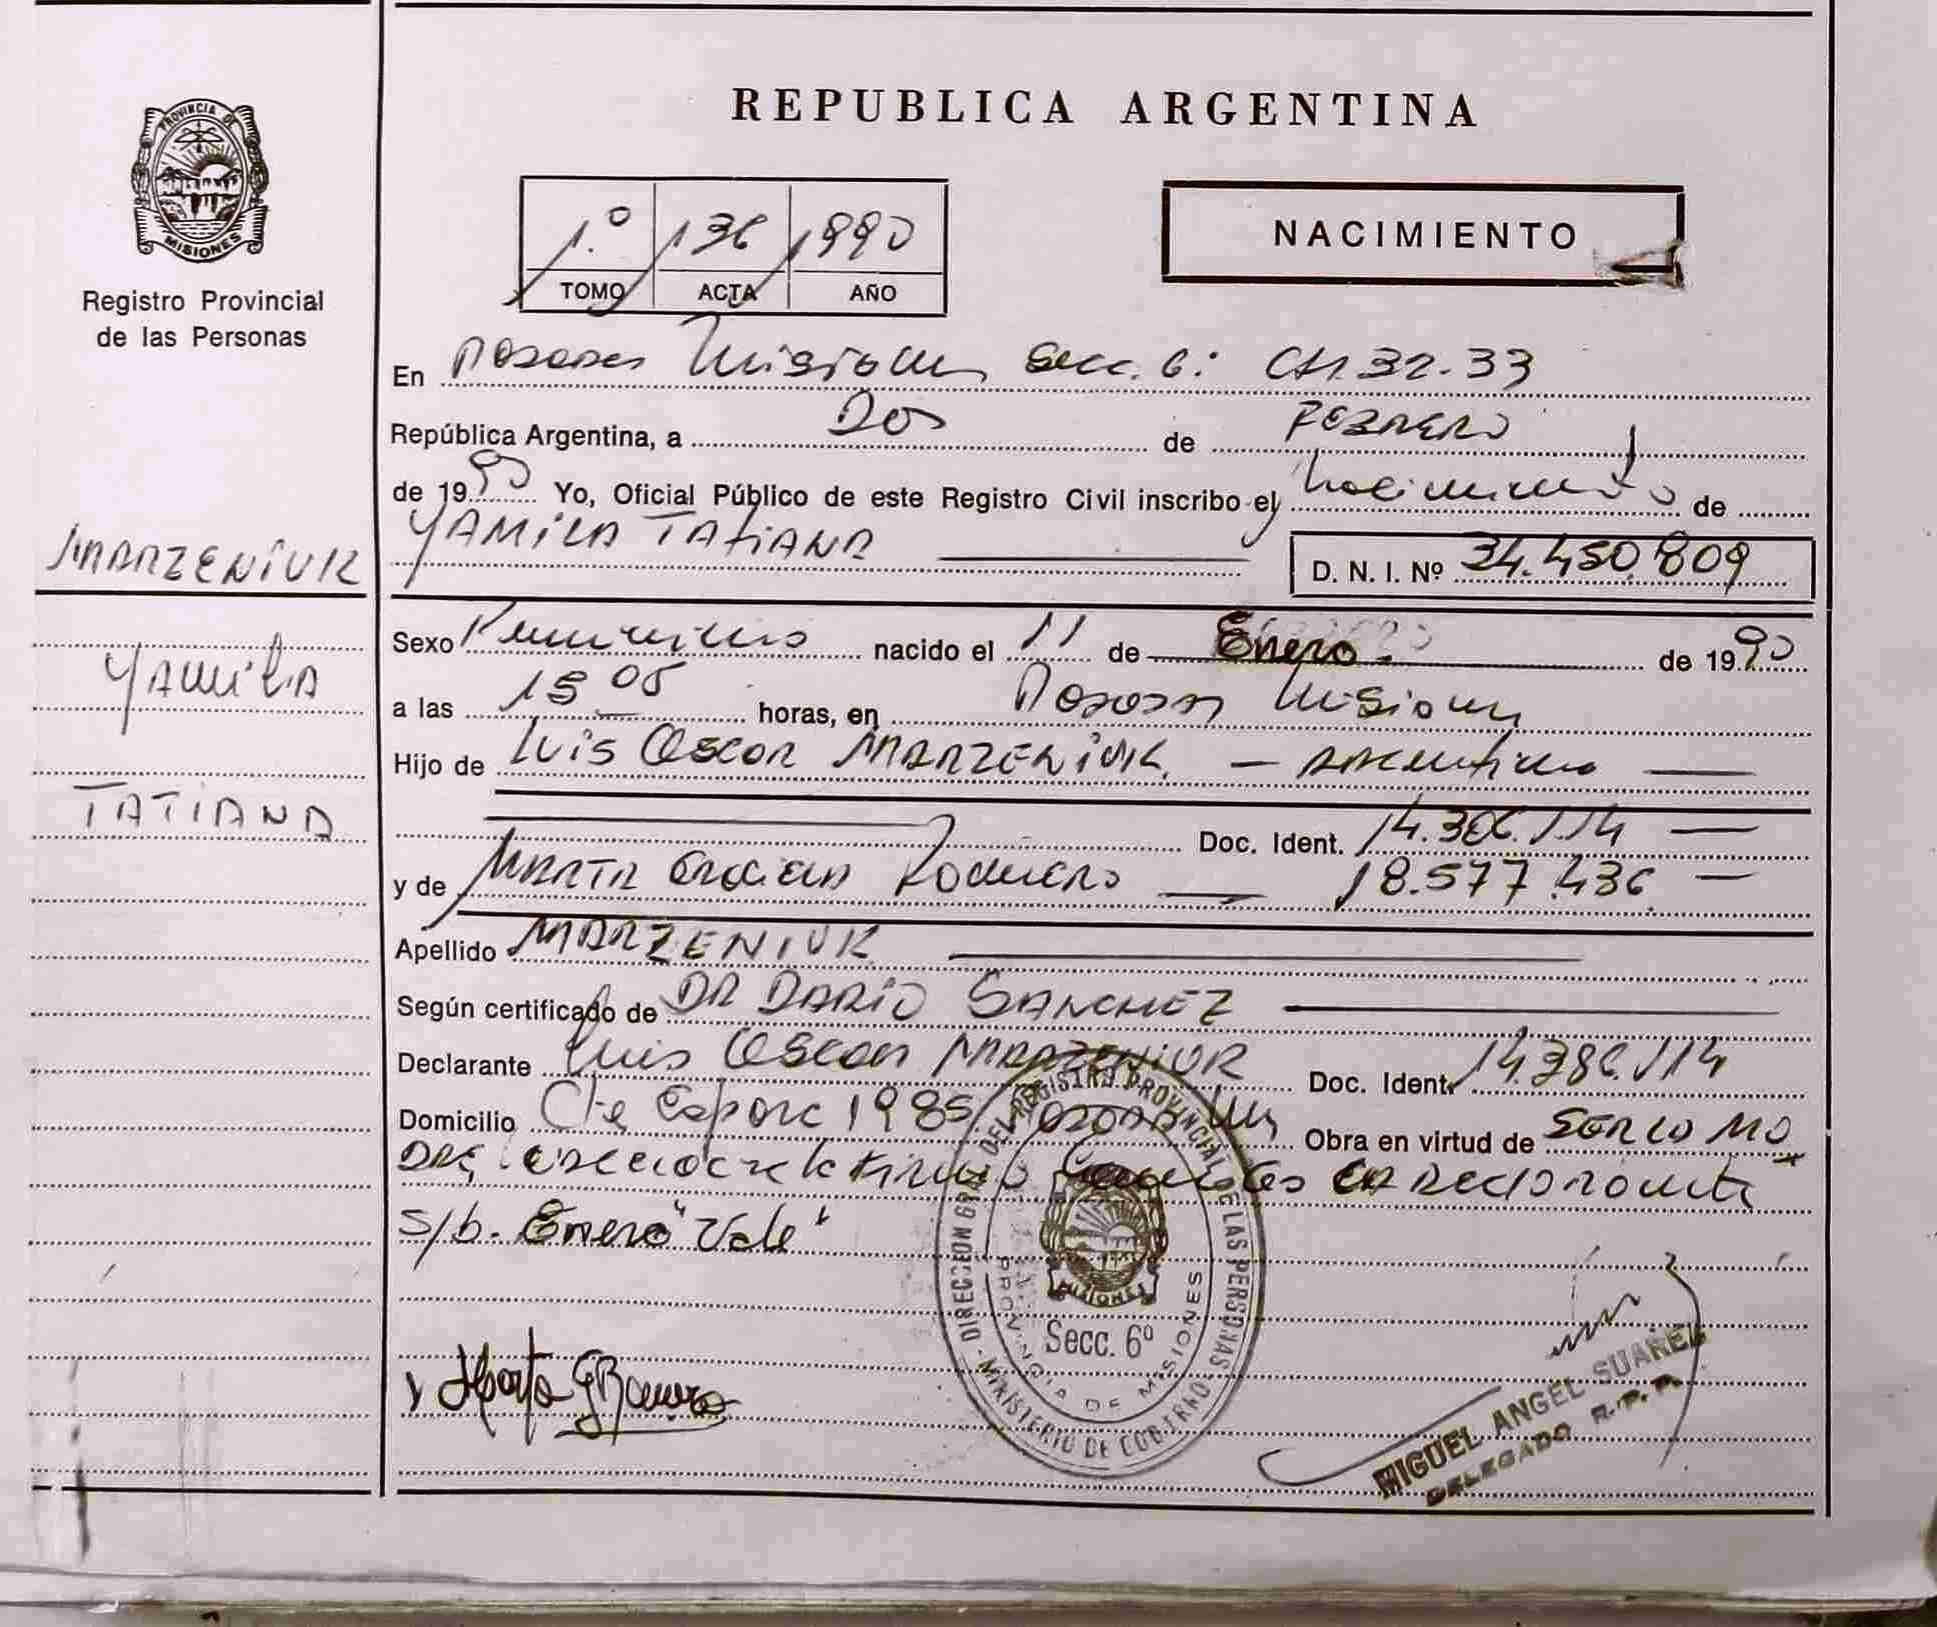 REPUBLICA ARGENTINA
PROVINCIA DE
MISIONES
Registro Provincial
de las Personas
1.º 136 1990
TOMO ACTA AÑO
NACIMIENTO
En Posadas Misiones Secc. 6: CH. 32-33
República Argentina, a Dos de FEBRERO
de 1990 Yo, Oficial Público de este Registro Civil inscribo el Nacimiento de
YAMILA TATIANA D. N. I. Nº 34.450.809
MARZENIUK
YAMILA
TATIANA
Sexo Femenino nacido el 11 de Enero de 1990
a las 15 05 horas, en Posadas Misiones
Hijo de Luis Oscar MARZENIUK — Argentino —
Doc. Ident. 14.386.114 —
y de MARTA Graciela Romero — 18.577.436 —
Apellido MARZENIUK
Según certificado de DR DARIO SANCHEZ
Declarante Luis Oscar MARZENIUK Doc. Ident. 14.386.114
Domicilio Cte Espora 1985 Posadas Mnes Obra en virtud de
S/b. Enero "Vale"
DIRECCION GRAL. DEL REGISTRO PROVINCIAL DE LAS PERSONAS - MINISTERIO DE GOBIERNO
MISIONES
Secc. 6º
PROVINCIA DE MISIONES
MIGUEL ANGEL SUAREZ
DELEGADO R.P.P.